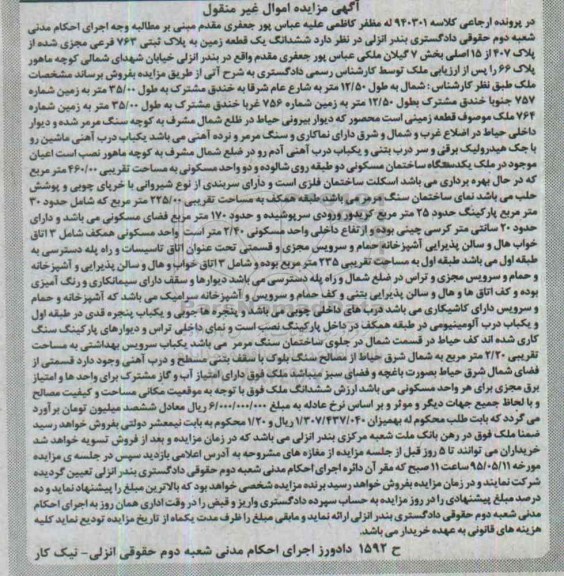 آگهی مزایده اموال غیر منقول
در پرونده ارجاعی کلاسه ۹۴۰۳۰۱ له مظفر کاظمی علیه عباس پور جعفری مقدم مبنی بر مطالبه وجه اجرای احکام مدنی
شعبه دوم حقوقی دادگستری بندر انزلی در نظر دارد ششدانگ یک قطعه زمین به پلاک ثبتی ۷۶۳ فرعی مجزی شده از
پلاک ۴۰۷ از ۱۵ اصلی بخش ۷ گیلان ملکی عباس پور جعفری مقدم واقع در بندر انزلی خیابان شهدای شمالی کوچه ماهور
پلاک ۶۶ را پس از ارزیابی ملک توسط کارشناس رسمی دادگستری به شرح آتی از طریق مزایده بفروش برساند مشخصات
ملک طبق نظر کارشناس: شمال به طول ۱۲/۵۰ متر به شارع عام شرقا به خندق مشترک به طول ۳۵/۰۰ متر به زمین شماره
۷۵۷ جنوبا خندق مشترک بطول ۱۲/۵۰ متر به زمین شماره ۷۵۶ غربا خندق مشترک به طول ۳۵/۰۰ متر به زمین شماره
۷۶۴ ملک موصوف قطعه زمینی است محصور که دیوار بیرونی حیاط در ظلع شمال مشرف به کوچه سنگ مرمر شده و دیوار
داخلی حیاط در اضلاع غرب و شمال و شرق دارای نماکاری و سنگ مرمر و نرده آهنی می باشد یکباب درب آهنی ماشین رو
با جک هیدرولیک برقی و سر درب بتنی و یکباب درب آهنی آدم رو در ضلع شمال مشرف به کوچه ماهور نصب است اعیان
موجود در ملک یکدستگاه ساختمان مسکونی دو طبقه روی شالوده و دو واحد مسکونی به مساحت تقریبی ۴۶۰/۰۰ متر مربع
که در حال بهره برداری می باشد اسکلت ساختمان فلزی است و دارای سربندی از نوع شیروانی با خرپای چوبی و پوشش
حلب می باشد نمای ساختمان سنگ مرمر می باشد طبقه همکف به مساحت تقریبی ۲۲۵/۰۰ متر مربع که شامل حدود ۳۰
متر مربع پارکینگ حدود ۲۵ متر مربع کریدور ورودی سرپوشیده و حدود ۱۷۰ متر مربع فضای مسکونی می باشد و دارای
حدود ۲۰ سانتی متر کرسی چینی بوده و ارتفاع داخلی واحد مسکونی ۲/۴۰ متر است واحد مسکونی همکف شامل ۳ اتاق
خواب هال و سالن پذیرایی آشپزخانه حمام و سرویس مجزی و قسمتی تحت عنوان اتاق تاسیسات و راه پله دسترسی به
طبقه اول می باشد طبقه اول به مساحت تقریبی ۲۳۵ متر مربع بوده و شامل ۳ اتاق خواب و هال و سالن پذیرایی و آشپزخانه
و حمام و سرویس مجزی و تراس در ضلع شمال و راه پله دسترسی می باشد دیوارها و سقف دارای سیمانکاری و رنگ آمیزی
بوده و کف اتاق ها و هال و سالن پذیرایی بتنی و کف حمام و سرویس و آشپزخانه سرامیک می باشد که آشپزخانه و حمام
و سرویس دارای کاشیکاری می باشد درب های داخلی چوبی می باشد و پنجره ها چوبی و یکباب پنجره قدی در طبقه اول
و یکباب درب آلومینیومی در طبقه همکف در داخل پارکینگ نصب است و نمای داخلی تراس و دیوارهای پارکینگ سنگ
کاری شده اند کف حیاط در قسمت شمال در جلوی ساختمان سنگ مرمر می باشد یکباب سرویس بهداشتی به مساحت
تقریبی ۲/۲۰ متر مربع به شمال شرق حیاط از مصالح سنگ بلوک با سقف بتنی مسطح و درب آهنی وجود دارد قسمتی از
فضای شمال شرق حیاط بصورت باغچه و فضای سبز میباشد ملک فوق دارای امتیاز آب و گاز مشترک برای واحد ها و امتیاز
برق مجزی برای هر واحد مسکونی می باشد ارزش ششدانگ ملک فوق با توجه به موقعیت مکانی مساحت و کیفیت مصالح
و با لحاظ جمیع جهات دیگر و موثر و بر اساس نرخ عادله به مبلغ ۶/۰۰۰/۰۰۰/۰۰۰ ریال معادل ششصد میلیون تومان برآورد
می گردد که بابت طلب محکوم له بهمیزان ۱/۳۰۷/۴۳۷/۰۴۰ ریال و ۱/۲۰ محکوم به بابت نیمعشر دولتی بفروش خواهد رسید
ضمنا ملک فوق در رهن بانک ملت شعبه مرکزی بندر انزلی می باشد که در زمان مزایده و بعد از فروش تسویه خواهد شد
خریداران می توانند تا ۵ روز قبل از جلسه مزایده از مغازه های مشروحه به آدرس اعلامی بازدید سپس در جلسه ی مزایده
مورخه ۹۵/۰۵/۱۱ ساعت ۱۱ صبح که مقر آن دائره اجرای احکام مدنی شعبه دوم حقوقی دادگستری بندر انزلی تعیین گردیده
شرکت نمایند و در زمان مزایده بفروش خواهد رسید برنده مزایده شخصی خواهد بود که بالاترین مبلغ را پیشنهاد نماید و ده
درصد مبلغ پیشنهادی را در روز مزایده به حساب سپرده دادگستری واریز و قبض را در وقت اداری همان روز به اجرای احکام
مدنی شعبه دوم حقوقی دادگستری بندر انزلی ارائه نماید و مابقی مبلغ را ظرف مدت یکماه از تاریخ مزایده تودیع نماید کلیه
هزینه های قانونی به عهده خریدار می باشد.
ح ۱۵۹۲ دادورز اجرای احکام مدنی شعبه دوم حقوقی انزلی- نیک کار